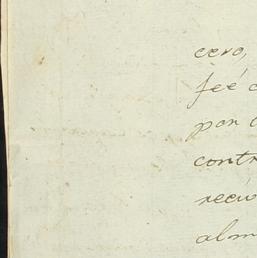 cero,
feé
por
contr
reciv
alm